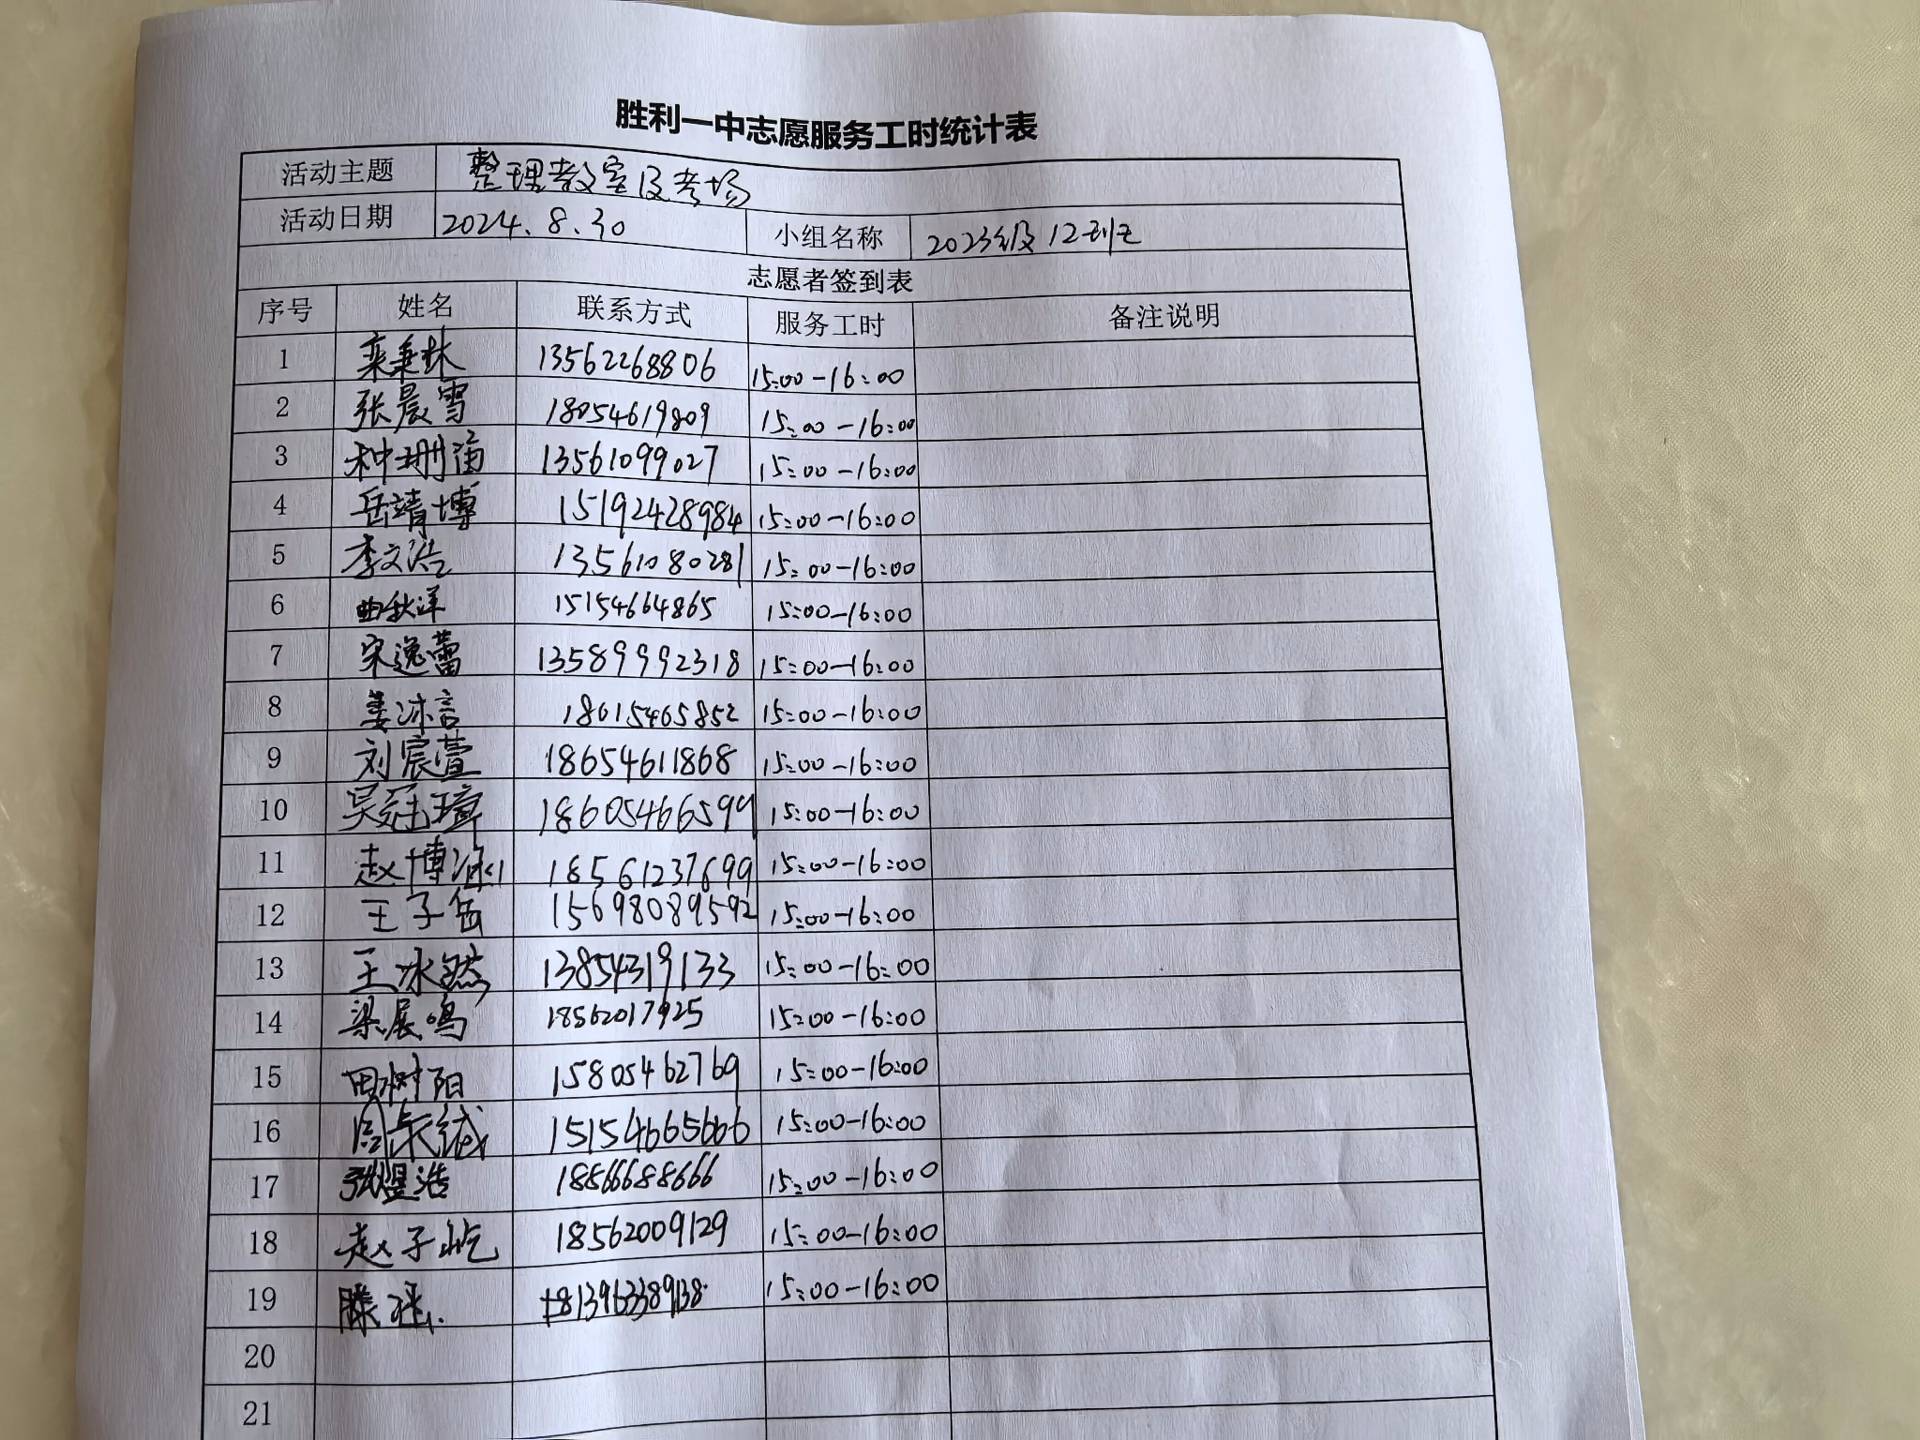 胜利一中志愿服务工时统计表
活动主题 整理教室及考场
活动日期 2024.8.30 小组名称 2023级12班
志愿者签到表
序号 姓名 联系方式 服务工时 备注说明
1 栾秉林 13562268806 15:00-16:00
2 张晨雪 18054619809 15:00-16:00
3 种珊 13561099027 15:00-16:00
4 岳靖博 15192428984 15:00-16:00
5 李文浩 13561080281 15:00-16:00
6 曲秋洋 15154664865 15:00-16:00
7 宋逸蕾 13589992318 15:00-16:00
8 姜沐言 18615465852 15:00-16:00
9 刘宸萱 18654611868 15:00-16:00
10 吴冠璋 18605466599 15:00-16:00
11 赵博 18561237699 15:00-16:00
12 王子岳 15698089592 15:00-16:00
13 王冰然 13854319133 15:00-16:00
14 梁展鸣 18562017925 15:00-16:00
15 田树阳 15805462769 15:00-16:00
16 15154665666 15:00-16:00
17 张煜浩 18566688666 15:00-16:00
18 赵子屹 18562009129 15:00-16:00
19 滕 15:00-16:00
20
21